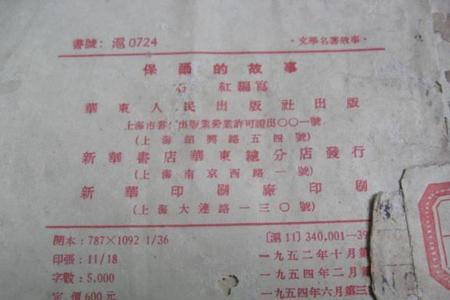 書號：滬0724
·文學名著故事·
保爾的故事
石 紅編寫
華東人民出版社出版
上海市書刊出版業營業許可證出〇〇一號
(上海紹興路五四號)
新華書店華東總分店發行
(上海南京西路一號)
新華印刷廠印刷
(上海大連路一三〇號)
開本：787×1092 1/36
印張：11/18
字數：5,000
定價600元
[滬11] 340,001—39
一九五二年十月第
一九五四年二月第
一九五四年六月第三